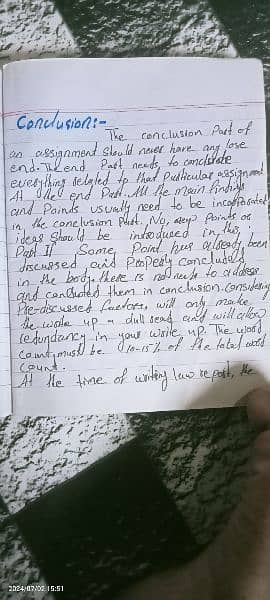 Conclusion:-
The conclusion Part of
an assignment should never have any lose
end. The end Part needs to conclude
everything related to that Particular assignment
At the end Part. All the main findings
and Points usually need to be incorporated
in the conclusion Part. No, any Points or
ideas should be introdused in this
Part If Some Point has already been
discussed and Properly concluded
in the body, there is no need to address
and concluded them in conclusion. Considering
Pre-discussed factors, will only make
the write up a dull read and will allow
redundancy in your write up. The word
count must be 10-15% of the total word
count.
At the time of writing law report, the
2024/07/02 15:51